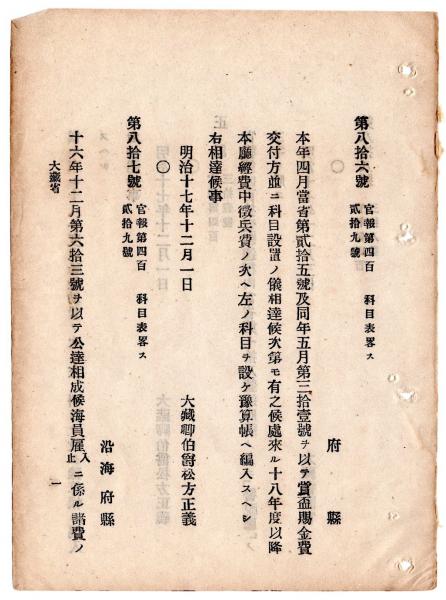 第八拾六號 官報第四百貳拾九號 科目表畧ス
○
府縣
本年四月當省第貳拾五號及同年五月第三拾壹號ヲ以テ賞盃賜金費
交付方並ニ科目設置ノ儀相達候次第モ有之候處來ル十八年度以降
本廳經費中徵兵費ノ次ヘ左ノ科目ヲ設ケ豫算帳ヘ編入スヘシ
右相達候事
明治十七年十二月一日
大藏卿伯爵松方正義
第八拾七號 官報第四百貳拾九號 科目表畧ス
○
沿海府縣
十六年十二月第六拾三號ヲ以テ公達相成候海員雇入止ニ係ル諸費ノ
大藏省
一